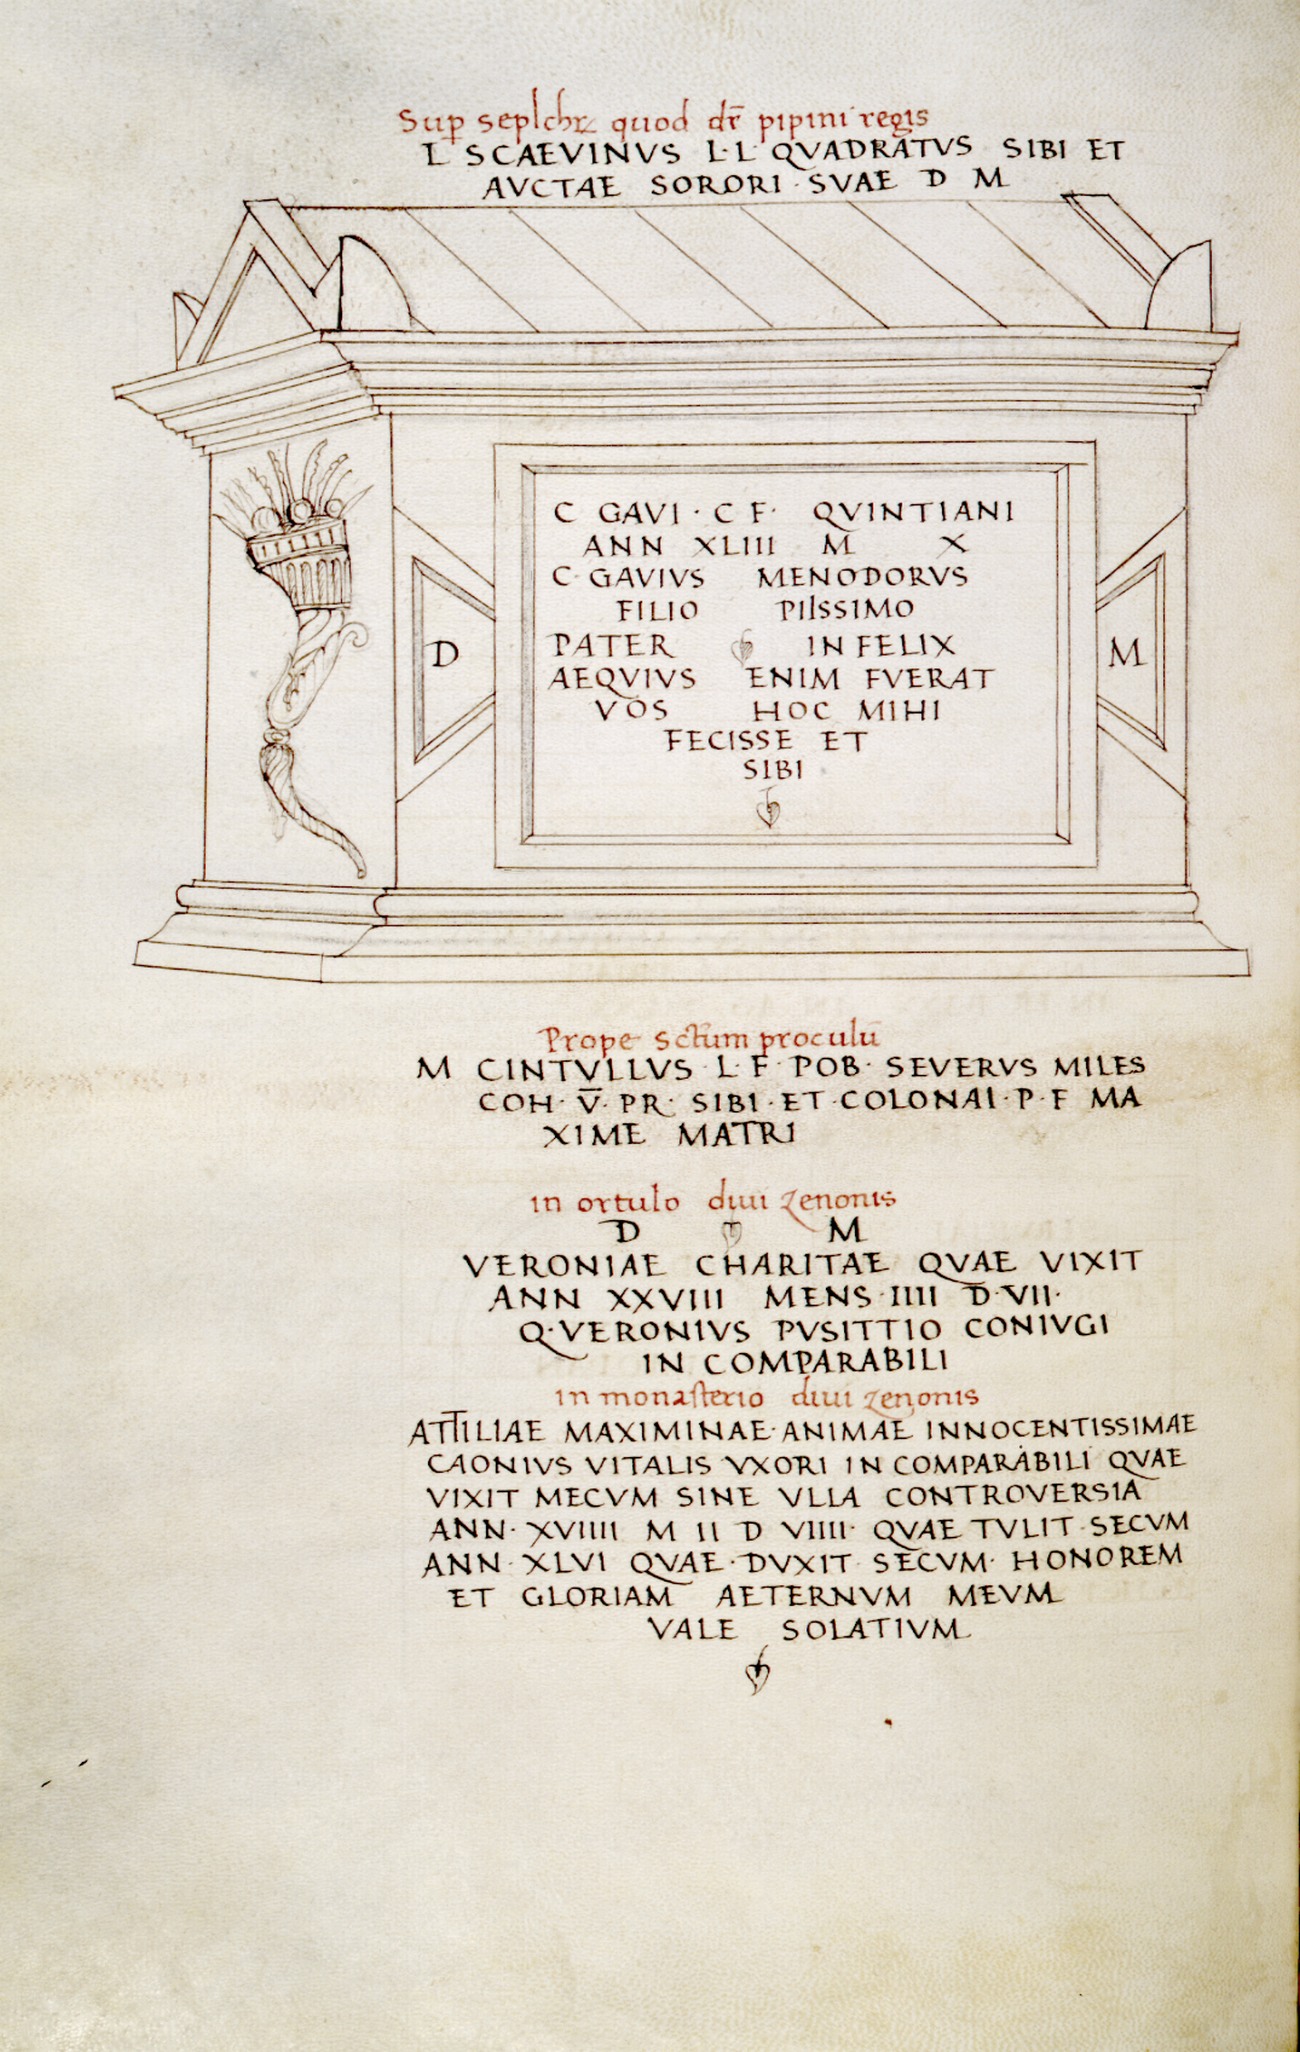 Sup̱ seplchꝝ quod dr̄ pipini regis
L SCAEVINVS L·L· QVADRATVS SIBI ET
AVCTAE SORORI · SVAE D M
C GAVI · C F · QVINTIANI
ANN XLIII M X
C· GAVIVS MENODORVS
FILIO PIISSIMO
PATER IN FELIX
D M
AEQVIVS ENIM FVERAT
VOS HOC MIHI
FECISSE ET
SIBI
Prope sctum proculū
M CINTVLLVS L·F POB· SEVERVS MILES
COH· V̅· PR· SIBI·ET·COLONAI·P·F MA
XIME MATRI
in ortulo diui zenonis
D M
VERONIAE CHARITAE QVAE VIXIT
ANN XXVIII MENS·IIII D·VII·
Q·VERONIVS PVSITTIO CONIVGI
IN COMPARABILI
in monasterio diui zenonis
ATTILIAE MAXIMINAE·ANIMAE INNOCENTISSIMAE
CAONIVS VITALIS VXORI IN COMPARABILI QVAE
VIXIT MECVM SINE VLLA CONTROVERSIA
ANN· XVIIII M II D VIIII· QVAE TVLIT·SECVM
ANN·XLVI QVAE·DVXIT SECVM· HONOREM
ET GLORIAM AETERNVM MEVM
VALE SOLATIVM